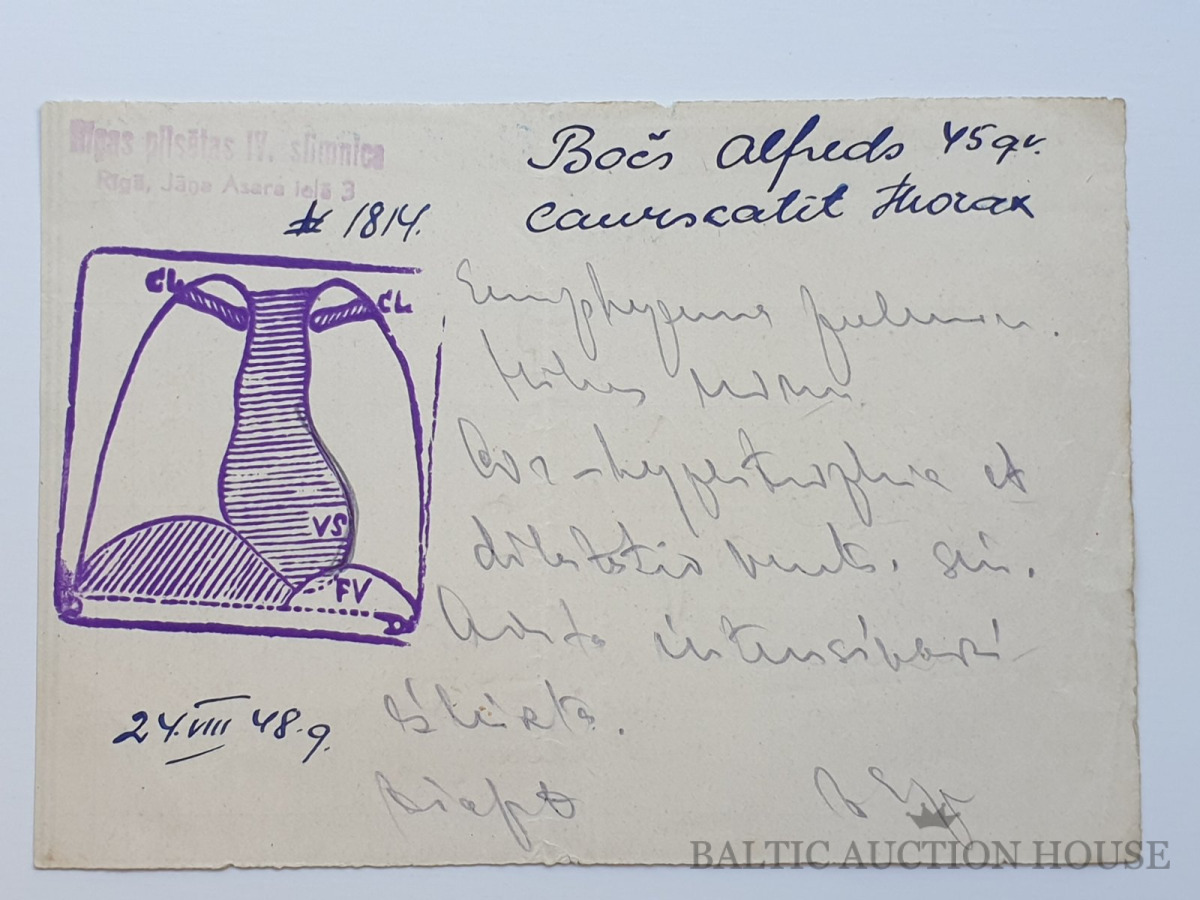 Rīgas pilsētas IV. slimnica
Rīgā, Jāņa Asara ielā 3
№ 1814.
Bočs Alfreds 45 gv.
caurskatīt thorax
CL
CL
VS
FV
D
Emphysema pulmon.
Hilus norm.
Cor – hypertrophia et
dilatatio ventr. sin.
Aorta intensīvāki
24.VIII 48.g.
BALTIC AUCTION HOUSE